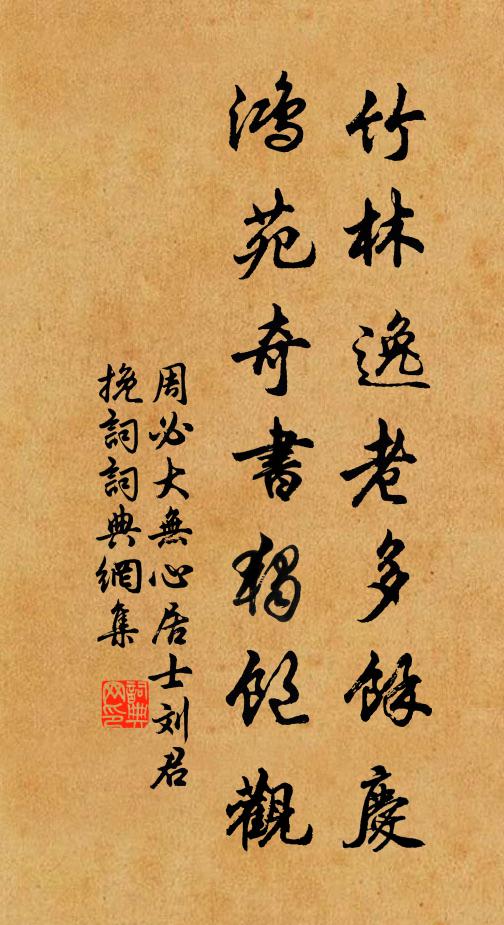 竹林逸老多餘慶
鴻苑奇書獨飽觀
周必大無心居士刘君
挽詞詞典網集
詞典
网印